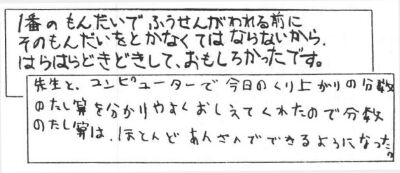 1番のもんだいでふうせんがわれる前に
そのもんだいをとかなくてはならないから、
はらはらどきどきして、おもしろかったです。
先生と、コンピューターで今日のくり上がりの分数
のたし算を分かりやすくおしえてくれたので分数
のたし算は、ほとんどあんざんでできるようになった。